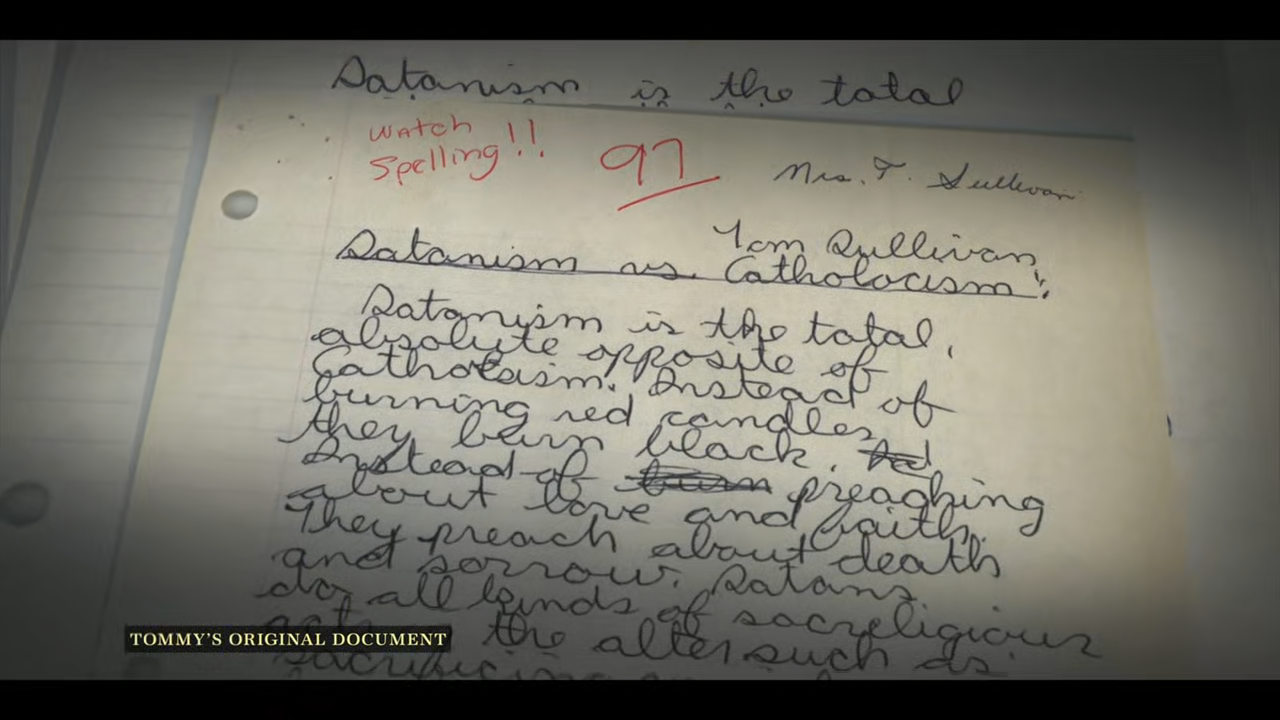 Satanism is the total
Watch
Spelling!!
97
Mrs. T. Sullivan
Tom Sullivan
Satanism vs. Catholocism
Satanism is the total,
absolute opposite of
Catholasism. Instead of
burning red candles
they burn black.
Instead of preaching
about love and faith.
They preach about death
and sorrow. Satans
do all kinds of sacreligious
the alter such as
sacrificing
TOMMY'S ORIGINAL DOCUMENT